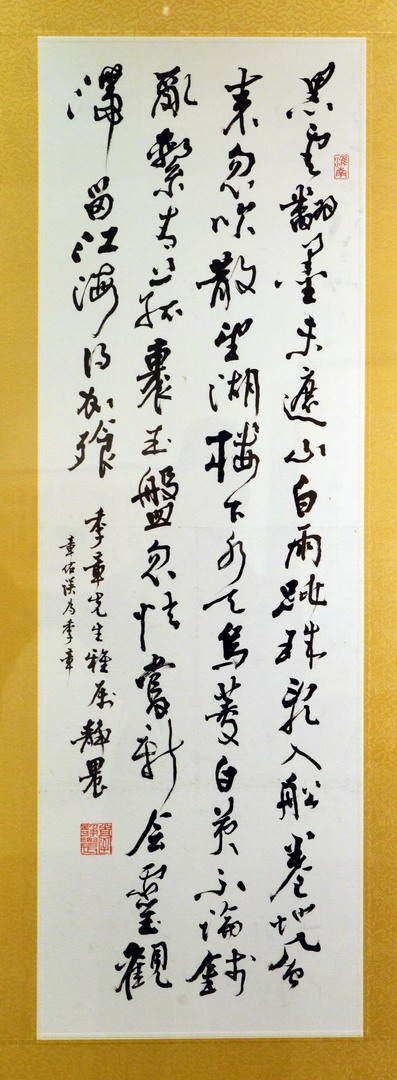 黑雲翻墨未遮山白雨跳珠亂入船卷地風
來忽吹散望湖樓下水如天烏菱白芡不論錢
亂繫青菰裹綠盤忽憶嘗新會靈觀
滯留江海得加餐
季章先生雅屬 靜農
章佑誤為季章